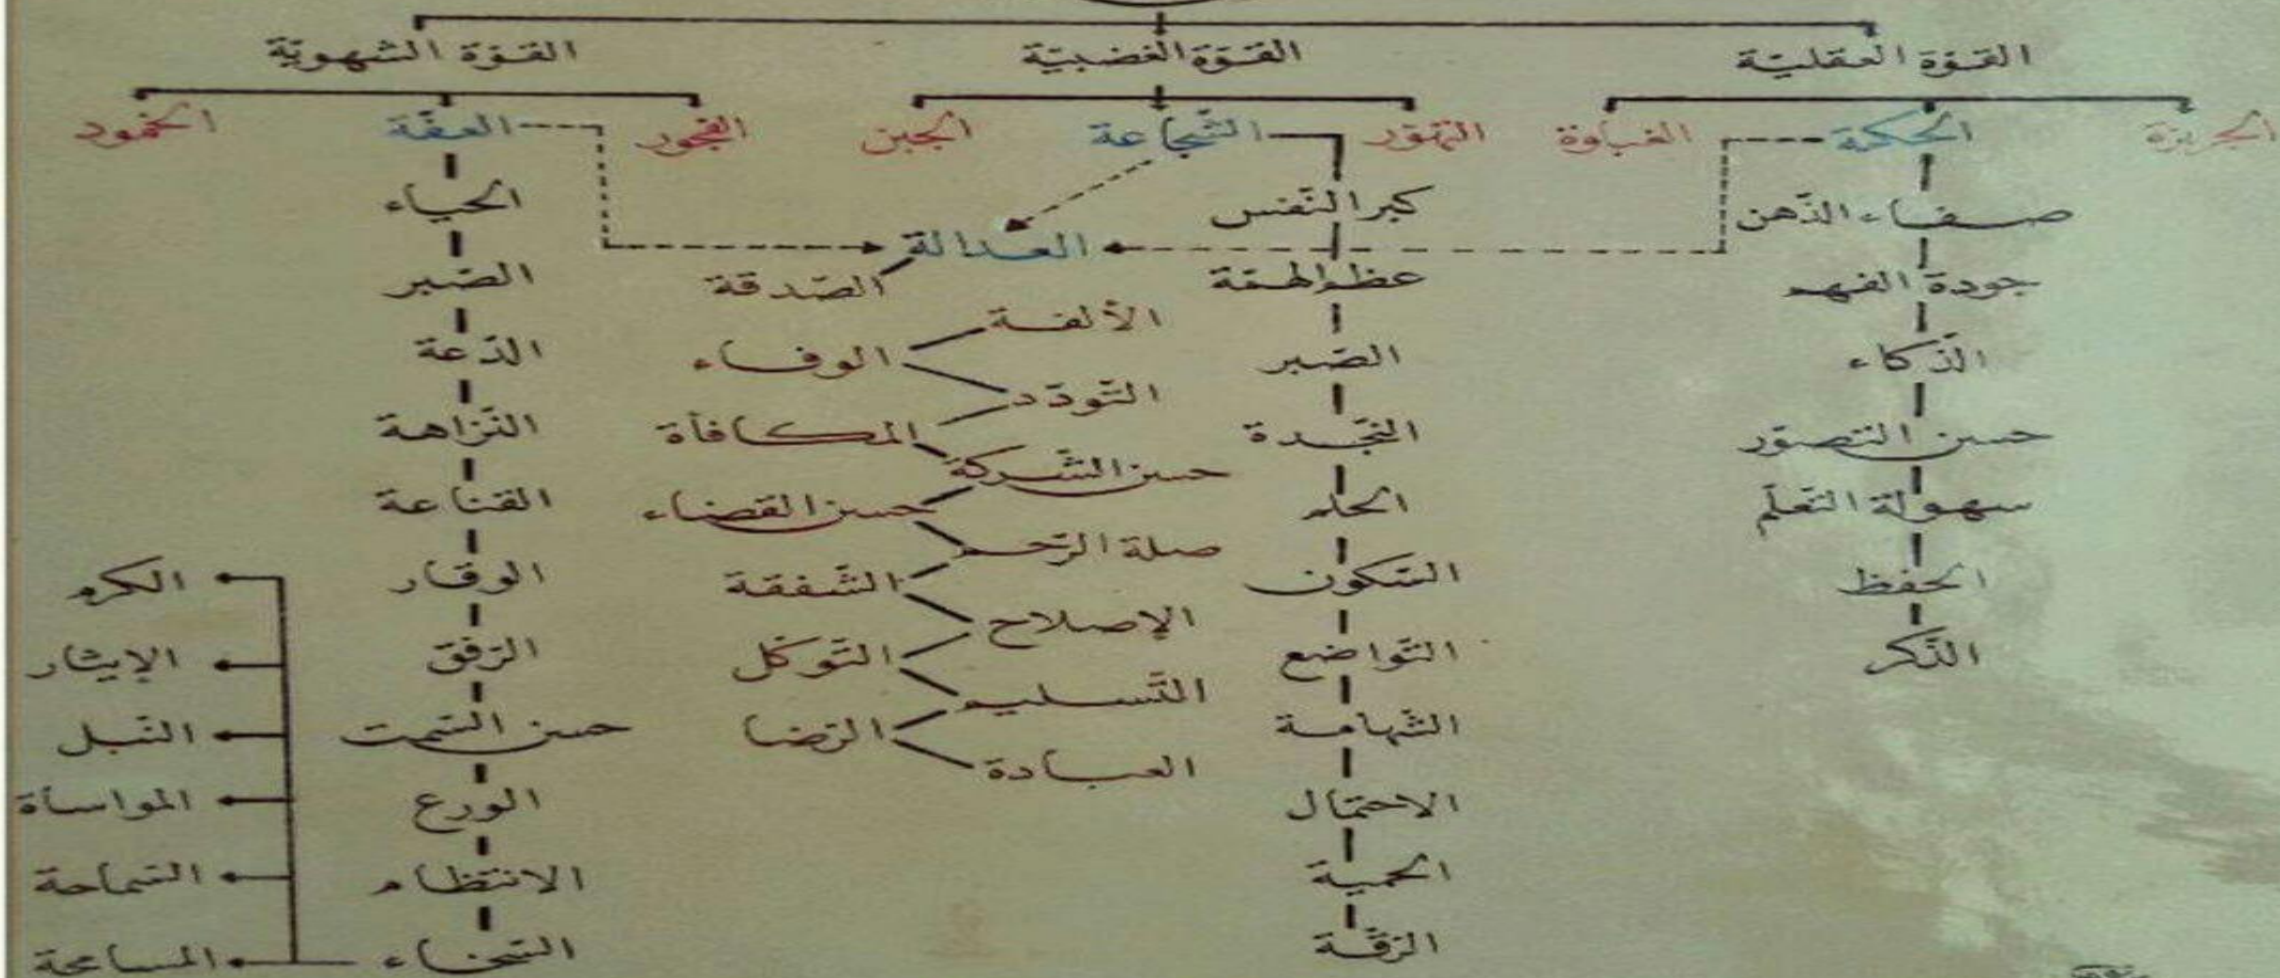 القوّة العقليّة
القوّة الغضبيّة
القوّة الشهويّة
الجربزة
الحكمة
الغباوة
التهوّر
الشّجاعة
الجبن
الفجور
العفّة
الخمود
صفاء الذّهن
جودة الفهم
الذّكاء
حسن التصوّر
سهولة التعلّم
الحفظ
الذّكر
كبر النّفس
عظم الهمّة
الصّبر
النّجدة
الحلم
السّكون
التّواضع
الشّهامة
الاحتمال
الحميّة
الرّقّة
العدالة
الصّدقة
الألفة
الوفاء
التّودّد
المكافأة
حسن الشّركة
حسن القضاء
صلة الرّحم
الشّفقة
الإصلاح
التّوكّل
التّسليم
الرّضا
العبادة
الحياء
الصّبر
الدّعة
النّزاهة
القناعة
الوقار
الرّفق
حسن السّمت
الورع
الانتظام
السّخاء
الكرم
الإيثار
النّبل
المواساة
السّماحة
المسامحة